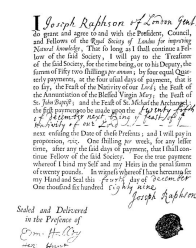 I Joseph Raphson of London Gent
do grant and agree to and with the President, Council,
and Fellows of the Royal Society of London for improving
Natural knowledge, That so long as I shall continue a Fel-
low of the said Society, I will pay to the Treasurer
of the said Society, for the time being, or to his Deputy, the
summ of Fifty two shillings per annum; by four equal Quar-
terly payments, at the four usual days of payment, that is
to say, the Feast of the Nativity of our Lord; the Feast of
the Annunciation of the Blessed Virgin Mary; the Feast of St.
John Baptist; and the Feast of St. Michael the Archangel;
the first payment to be made upon the
of December next being the feast of the
Nativity of our Lord
next ensuing the Date of these Presents; and I will pay in
proportion, viz. One shilling per week, for any lesser
time, after any the said days of payment, that I shall con-
tinue Fellow of the said Society. For the true payment
whereof I bind my Self and my Heirs in the penal summ
of twenty pounds. In witness whereof I have hereunto set
my Hand and Seal this fourth day of December
One thousand six hundred eighty nine
Joseph Raphson
Sealed and Delivered
in the Presence of
Edm: Halley